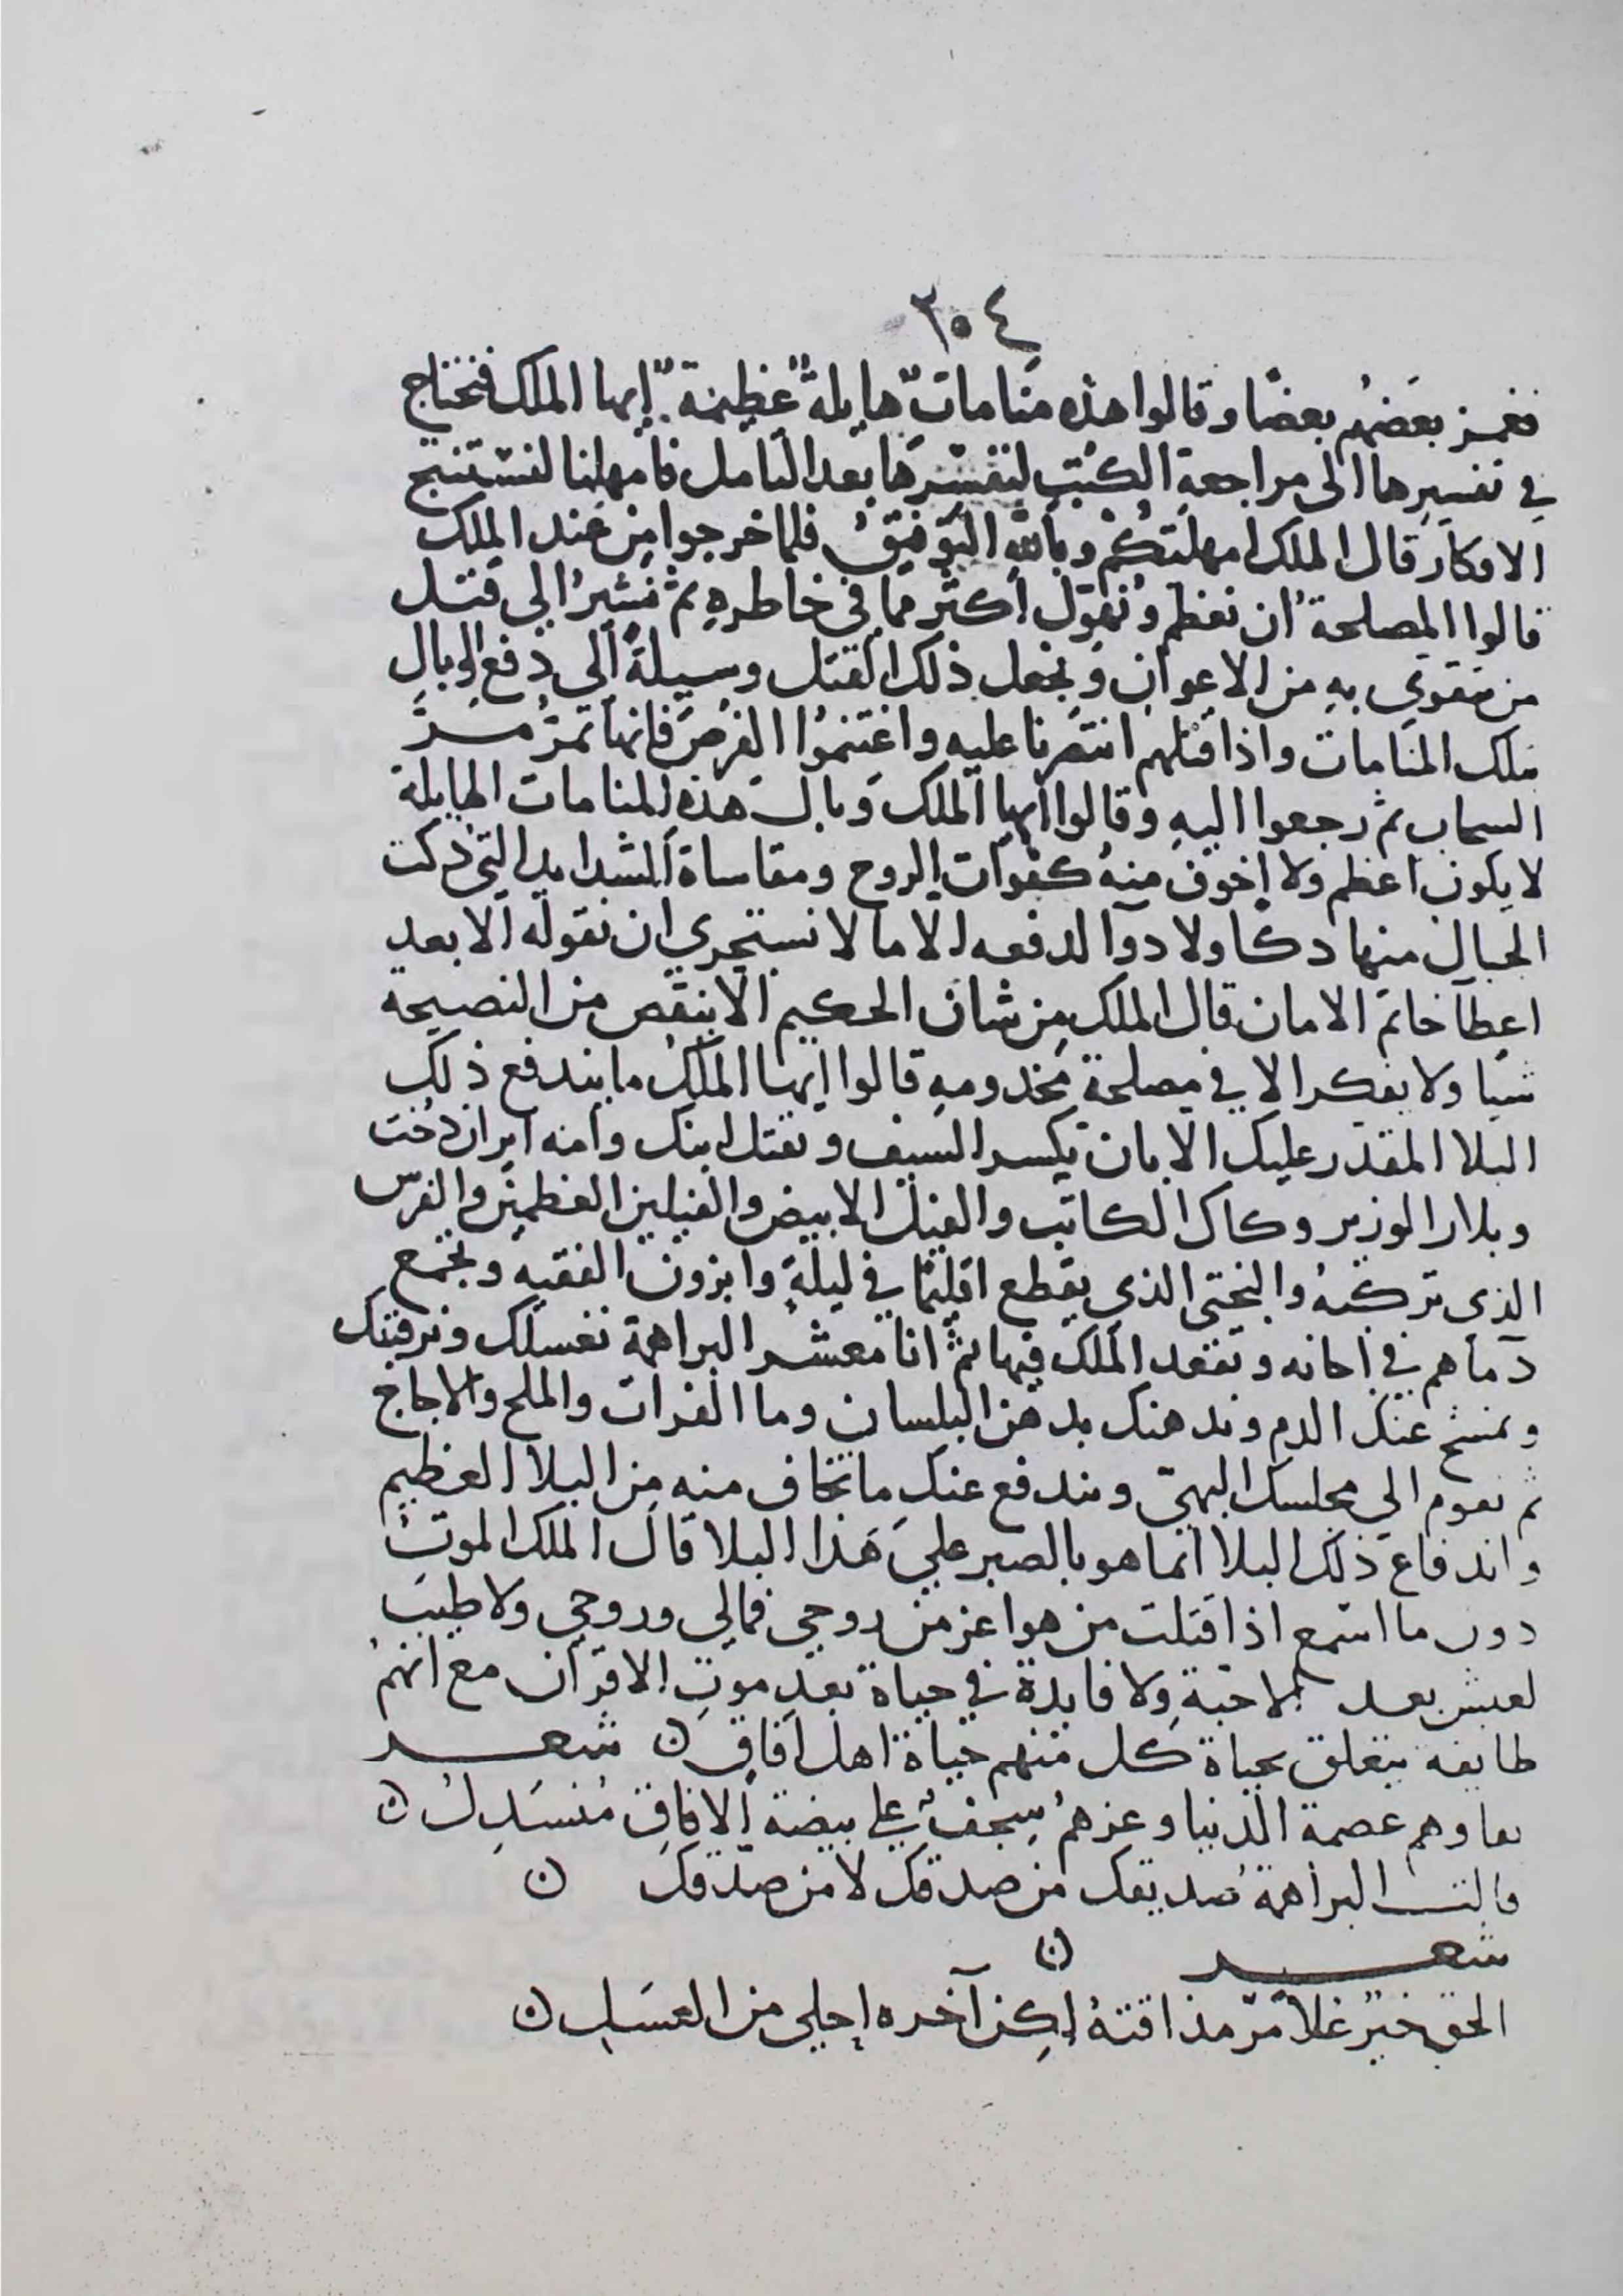 ٢٥٤
فغمز بعضهم بعضا وقالوا هذه منامات هايلة عظيمة ايها الملك فنحتاج
في تفسيرها الى مراجعة الكتب لنفسرها بعد التامل فامهلنا لنستنتج
الافكار قال الملك امهلتكم وبالله التوفيق فلما خرجوا من عند الملك
قالوا المصلحة ان نعظم ونهول اكثر مما في خاطره ثم نشير الى قتل
من يتقوى به من الاعوان ونجعل ذلك القتل وسيلة الى دفع الوبال
بتلك المنامات واذا قتلهم انتصرنا عليه واغتنموا الفرص فانها تمر مر
السحاب ثم رجعوا اليه وقالوا ايها الملك وبال هذه المنامات الهايلة
لا يكون اعظم ولا اخوف منه كفوات الروح ومقاساة الشدايد التي دكت
الجبال منها دكا ولا دوآ لدفعه الا ما لا نستجري ان نقوله الا بعد
اعطآ خاتم الامان قال الملك من شان الحكيم الا ينقص من النصيحة
شيا ولا يفكر الا في مصلحة مخدومه قالوا ايها الملك ما يندفع ذلك
البلا المقدر عليك الا بان تكسر السيف وتقتل ابنك وامه ايران دخت
وبلار الوزير وكاك الكاتب والفيل الابيض والفيلين العظيمين والفرس
الذى تركبه والبختي الذي يقطع اقليما في ليلة وابزون الفقيه ونجمع
دمآهم في اجانه وتقعد الملك فيها ثم انا معشر البراهمة نغسلك ونرقيك
ونمسح عنك الدم وندهنك بدهن البلسان وما الفرات والملح والاجاج
ثم تقوم الي مجلسك البهي ويندفع عنك ما تخاف منه من البلا العظيم
واندفاع ذلك البلا انما هو بالصبر على هذا البلا قال الملك الموت
دون ما اسمع اذا قتلت من هو اعز من روحي فمالي وروحي ولا طيب
لعيش بعد الاحبة ولا فايدة في حياة بعد موت الاقران مع انهم
طايفة يتعلق بحياة كل منهم حياة اهل افاق ن شعر
بقاوهم عصمة الدنيا وعزهم سجف على بيضة الافاق منسدل ن
قالت البراهمة صديقك من صدقك لا من صدقك ن
شعر ن
الحق خير غلا مر مذاقته لكن آخره احلى من العسل ن